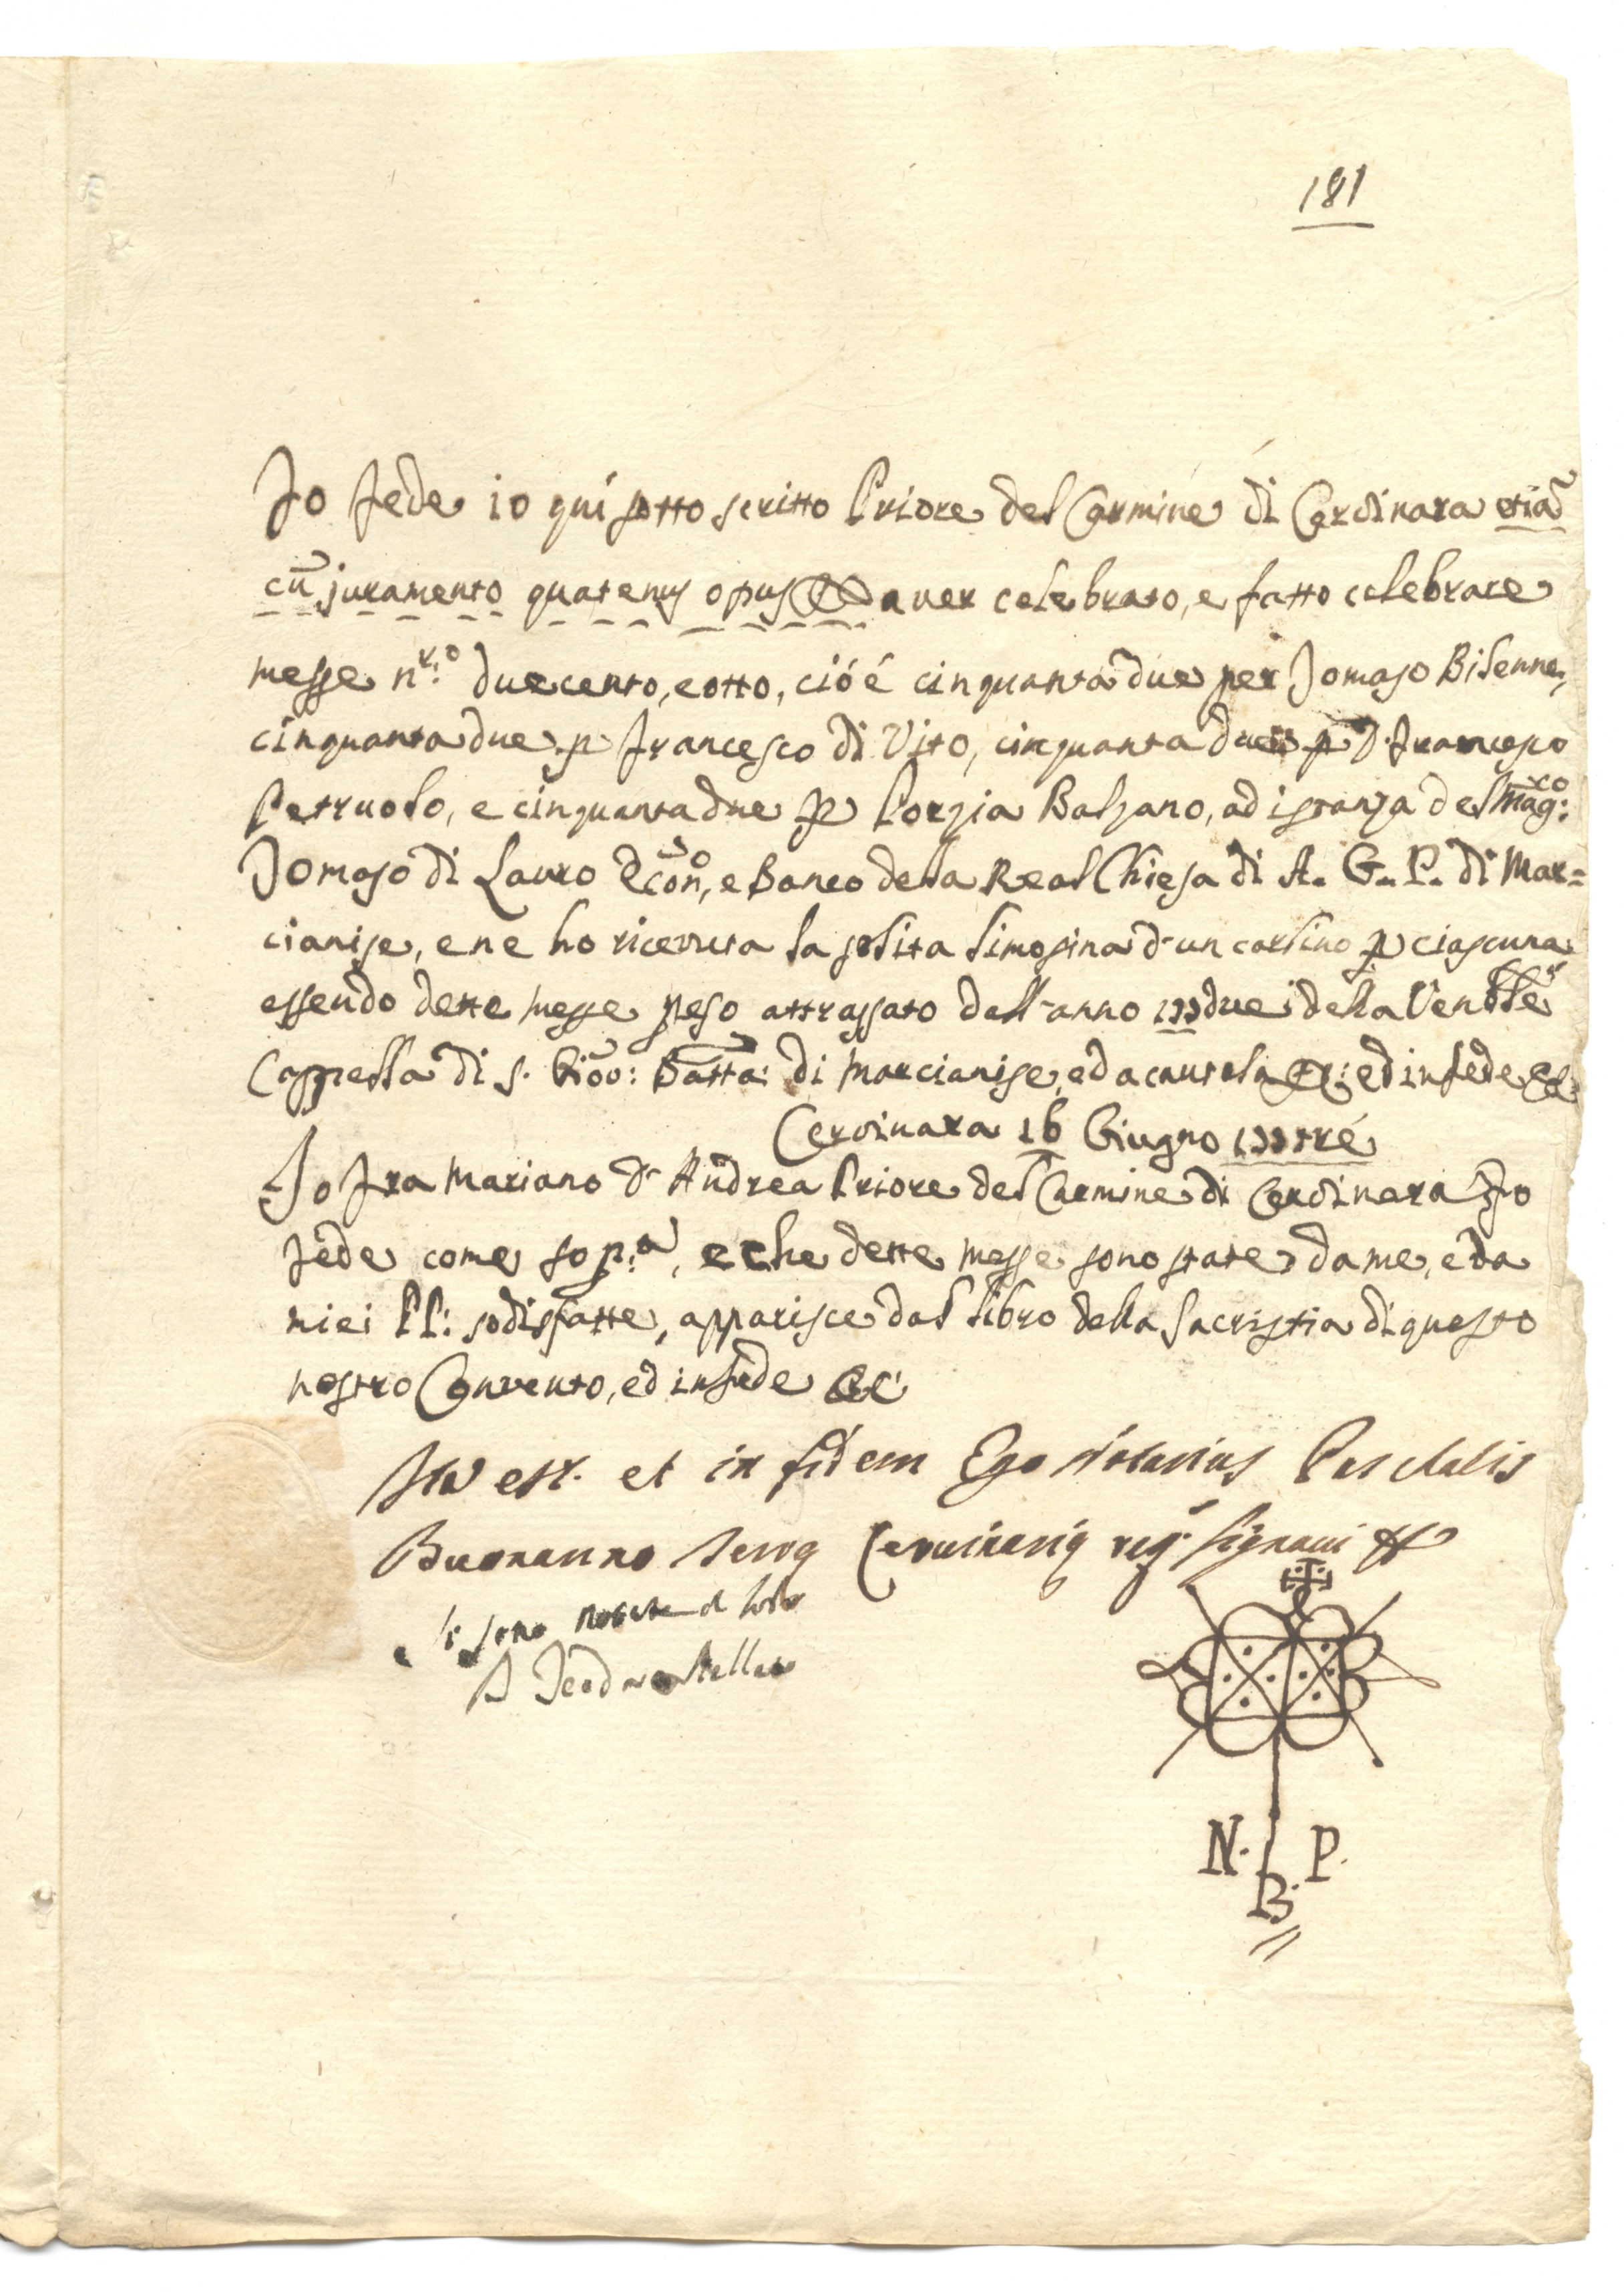 181
Fo fede io quí sotto scritto Priore del Carmine di Cervinara etiã
cũ juramento quatenus opus aver celebrato, e fatto celebrare
messe n.ro duecento, e otto, cióé cinquanta due per Tomaso Bisenne,
cinquanta due p Francesco di Vito, cinquanta due p D. Francesco
Petruolo, e cinquanta due p Porzia Balzano, ad istanza del Mag.co
Tomaso di Lauro Econ.o, e Banco della Real Chiesa di A. G. P. di Mar=
cianise, e ne ho ricevuta la solita limosina d'un carlino p ciascuna
essendo dette messe peso attrassato dell'anno 177due della Ven.ble
Cappella di S. Giov: Batta: di Marcianise, ed a cautela &c: ed in fede &c:
Cervinara 16 Giugno 177tré
Io Fra Mariano d'Andrea Priore del Carmine di Cervinara Fo
fede come sop.a, e che dette messe sono state da me, e da
miei PP: sodisfatte, apparisce dal libro della Sacristia di questo
nostro Convento, ed in fede &c:
Ita est. et in fidem Ego Notarius Paschalis
Buonanno Terrę Cervinarię reg.s signavi
e si sono notate a lib.o
N. P.
B.